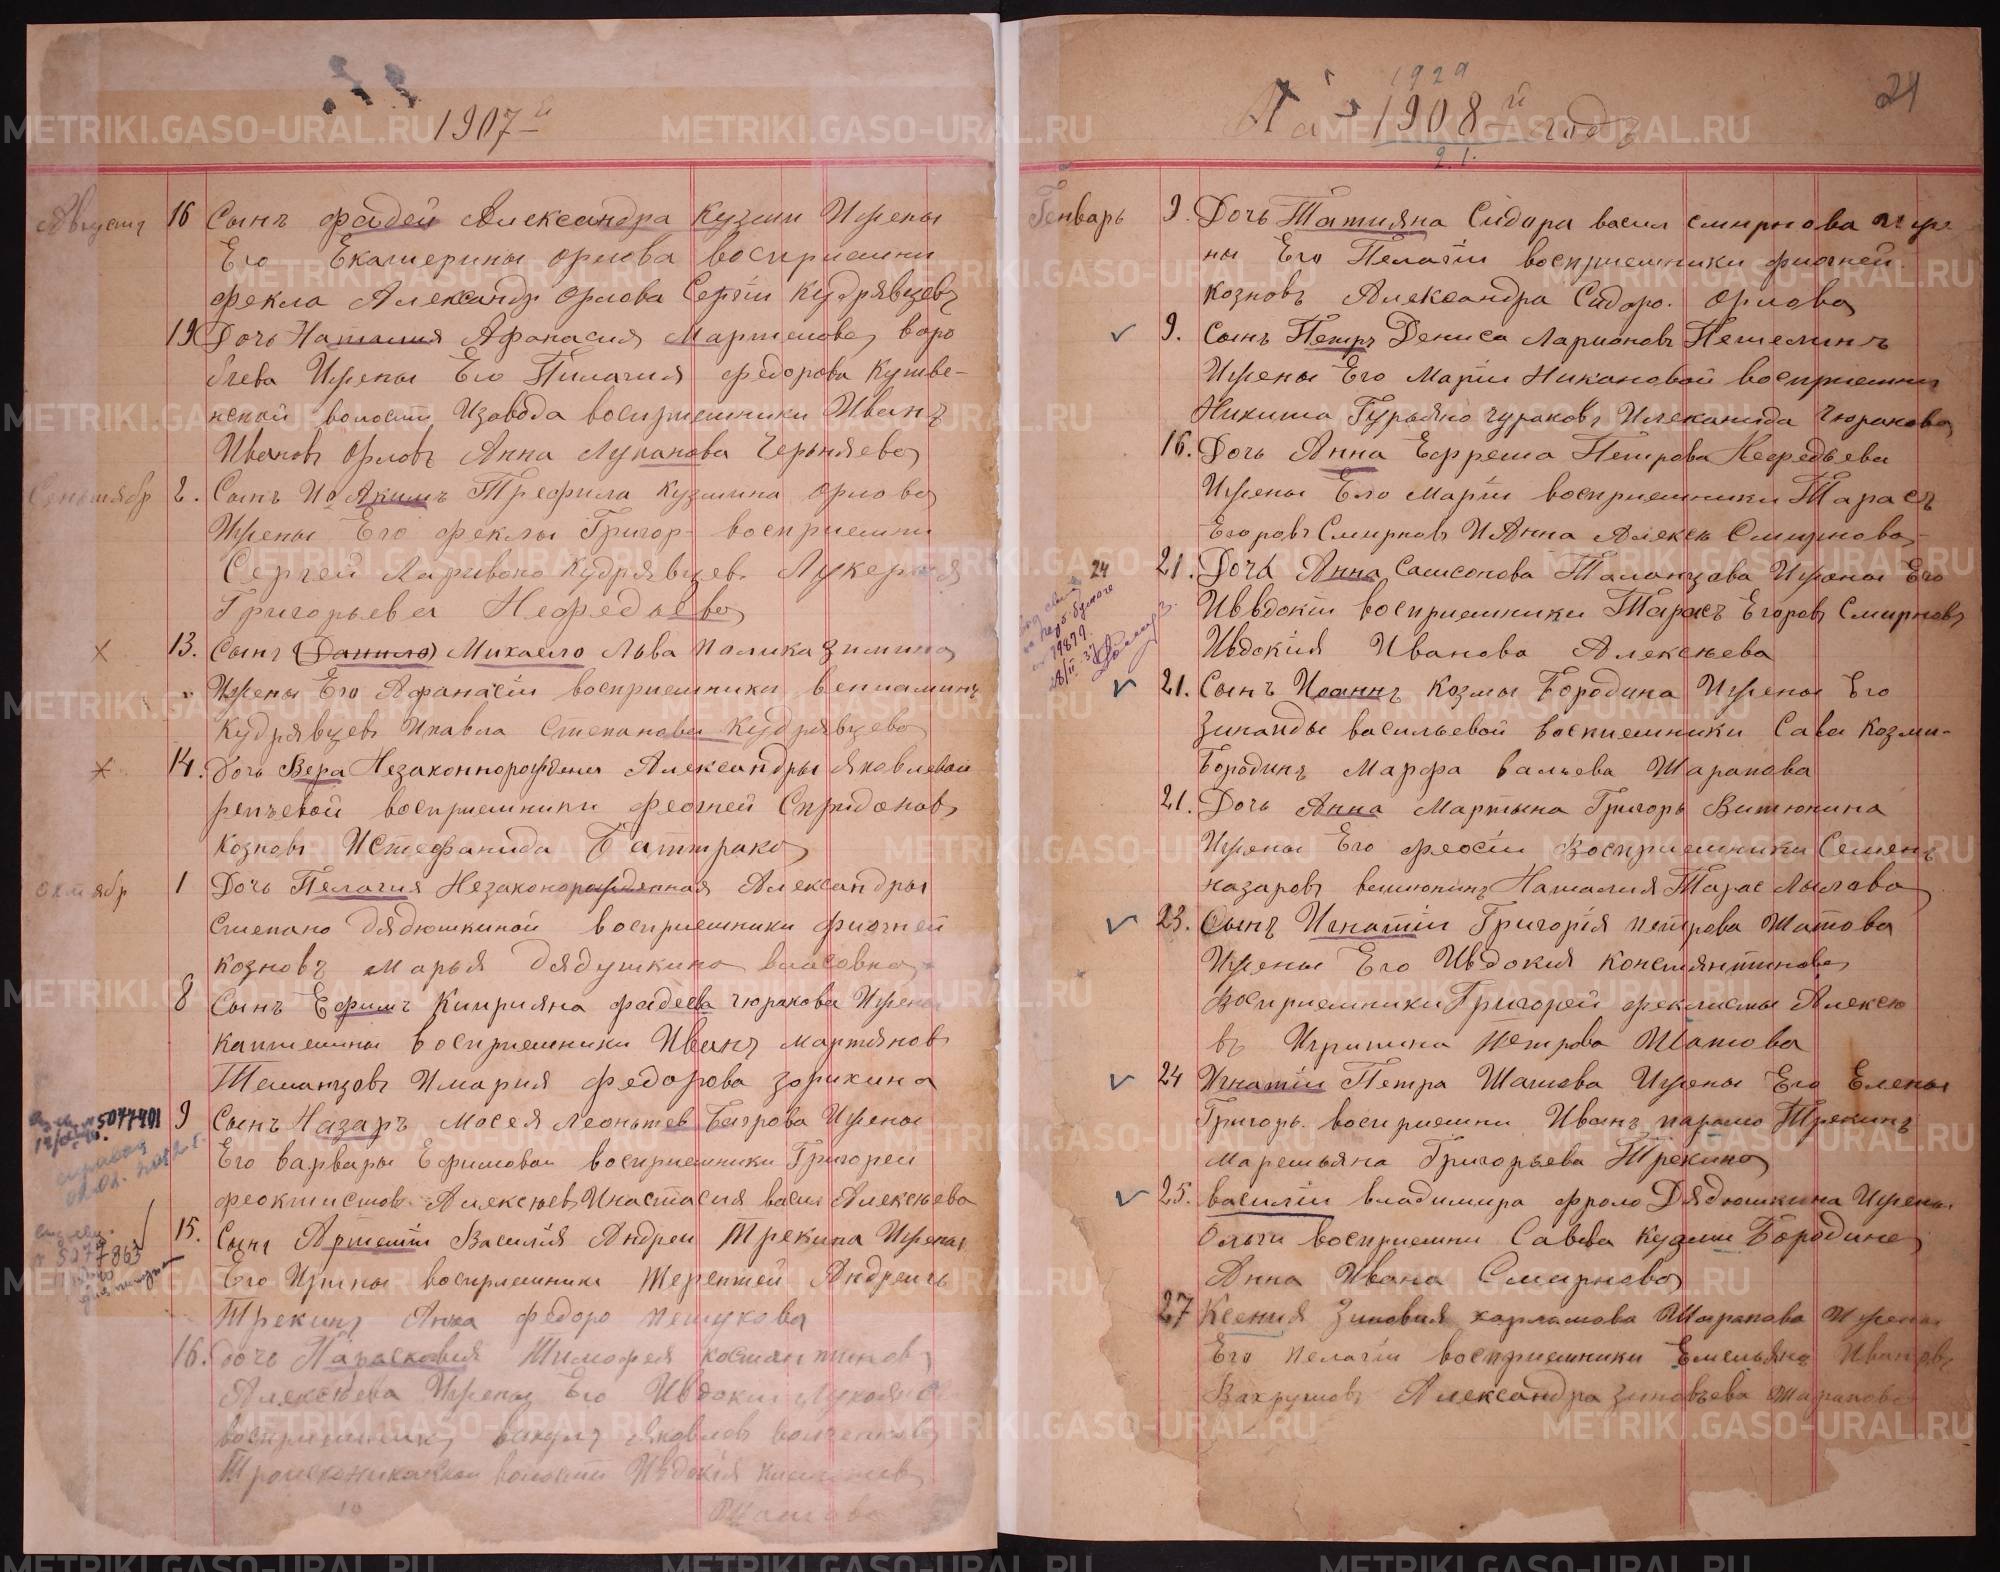 1907 й
Августа 16 Сынъ Фадей Александра Кузми Ижены
Его Екатерины Орлова восприемни
Фекла Александр Орлова Сергiй Кудрявцевъ
19 Дочь Наталия Афанасия Мартемова Воро
бьева Ижены Его Пилагия Федорова Кушве-
нской волости Изавода восприемники Иванъ
Ивановъ Орловъ Анна Луканова Черняева
Сентября 2. Сынъ Иоакимъ Трефила Кузмина Орлова
Ижены Его Феклы Григор- восприемни
Сергей Ларивоно Кудрявцев. Лукерия
Григорьева Нефедьева
13. Сынъ (Данило) Михаело Льва Полика Зимина
Ижены Его Афанасiи восприемники Вениаминъ
Кудрявцевъ Ипавла Степанова Кудрявцева
14. Дочь Вера Незаконнорождена Александры Яковлевой
репьевой восприемники Феогней Спридоновъ
Козновъ Истефанида Батрако
октября 1 Дочь Пелагия Незаконорожденная Александры
Степано Дядюшкиной восприемники Фиогней
Козновъ Марья Дядушкина Власовна
8 Сынъ Ефимъ Киприяна Фадеева Чюракова Ижены
Капитемины Восприемники Иванъ Мартиянов
Таланцовъ Имария Федорова Зорихина
5077401
9 Сынъ Назаръ Мосея Леонтьев Багрова Ижены
Его Варвары Ефимовой восприемники Григореи
Феоктистовъ Алексеевъ Инастасия Васил Алексеева
15. Сынъ Артемiй Василия Андреи Трекина Ижены
Его Ирины восприемники Терентей Андреичь
Трекинъ Анна Федоро Пешукова
16. дочь Парасковия Тимофея Костантиновъ
Алексеева Ижены Его Ивдокии Лукояно
восприемники Вакулъ Яковлев
волости Ивдокiя
Шатова
24
1929
На 1908 й годъ
2.1.
Генварь 9. Дочь Татияна Сидара васил Смирнова иже
ны Его Пелагiи восприемники Фиогней
Козновъ Александра Сидоро. Орлова
9. Сынъ Петръ Дениса Ларионовъ Пешелинъ
Ижены Его Марiи Никановой восприемни
Никита Гурьяно Чураковъ Илеканида Чюракова
16. Дочь Анна Ефрема Петрова Нефедьева
Ижены Его Марiи восприемники Тарасъ
Егоровъ Смирновъ ИАнна Алексе Смирнова
24
21. Дочь Анна Самсонова Таланцова Ижены Его
Ивдокiи восприемники Тарасъ Егоровъ Смирновъ
Ивдокiя Иванова Алексеева
21. Сынъ Иоаннъ Козмы Бородина Ижены Его
Зинаиды васильевой воспиемники Сава Козми-
Бородинъ Марфа вальева Шарапова
21. Дочь Анна Мартына Григорь Витюнина
Ижены Его Феосiи Восприемники Семенъ
назаровъ ветюнинъ Наталия Тарас Лылова
23. Сынъ Игнатiи Григорiя Петрова Шатова
Ижены Его Ивдокия Констянтинова
Восприемники Григорей Феклисты Алексе
въ Игрипина Петрова Шатова
24 Игнатiи Петра Шатова Ижены Его Елены
Григорь. восприемни Иванъ парамо Трекинъ
Марешьяна Григорьева Трекина
25. Василiи Владимира Фроло Дядюшкина Ижены
Ольги восприемни Савева Кузми Бородина
Анна Ивана Смирнова
27 Ксения Зиновия харламова Шарапова Ижены
Его Пелагiи восприемники Емельянъ Ивановъ
Вахрушовъ Александра Зиновьева Шарапова
METRIKI.GASO-URAL.RU